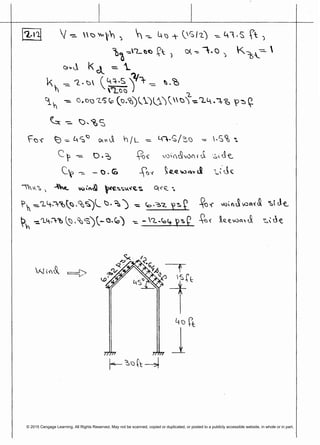 2.12 V = 110 mph ; h = 40 + (15/2) = 47.5 ft ;
zg = 1200 ft ; α = 7.0 ; Kzt = 1
and Kd = 1
Kh = 2.01 (47.5/1200)^2/7 = 0.8
qh = 0.00256 (0.8)(1)(1)(110)^2 = 24.78 psf
G = 0.85
For θ = 45° and h/L = 47.5/30 = 1.58 :
Cp = 0.3 for windward side
Cp = -0.6 for leeward side
Thus, the wind pressures are :
Ph = 24.78(0.85)(0.3) = 6.32 psf for windward side
Ph = 24.78(0.85)(-0.6) = -12.64 psf for leeward side
Wind
6.32 psf
12.64 psf
45°
15 ft
40 ft
30 ft
© 2015 Cengage Learning. All Rights Reserved. May not be scanned, copied or duplicated, or posted to a publicly accessible website, in whole or in part.